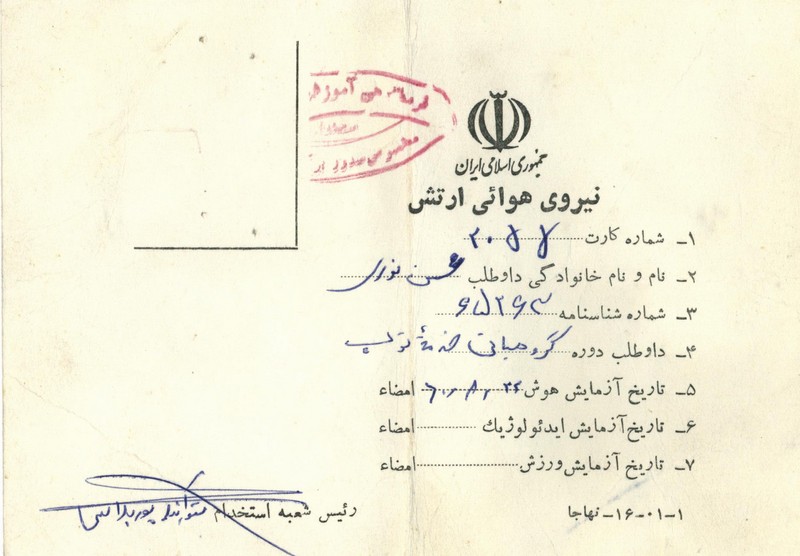 فرماندهی آموزش
مخصوص صدور
جمهوری اسلامی ایران
نیروی هوائی ارتش
۱ـ شماره کارت ۲۰۷۷
۲ـ نام و نام خانوادگی داوطلب حسن نوری
۳ـ شماره شناسنامه
۴ـ داوطلب دوره گروهبانی
۵ـ تاریخ آزمایش هوش امضاء
۶ـ تاریخ آزمایش ایدئولوژیك امضاء
۷ـ تاریخ آزمایش ورزش امضاء
۱-۰۱-۱۶- نهاجا
رئیس شعبه استخدام